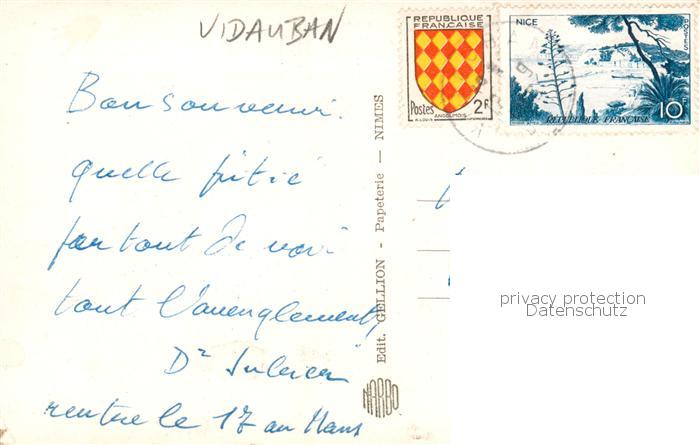 VIDAUBAN
RÉPUBLIQUE
FRANÇAISE
Postes 2F
ANGOUMOIS
NICE
POSTES
10F
RÉPUBLIQUE FRANÇAISE
Bon souvenir.
quelle pitié
partout de voir
tout l'aveuglement,
Dr
rentre le 17 au Mans
Edit. GELLION - Papeterie — NIMES
NARBO
privacy protection
Datenschutz